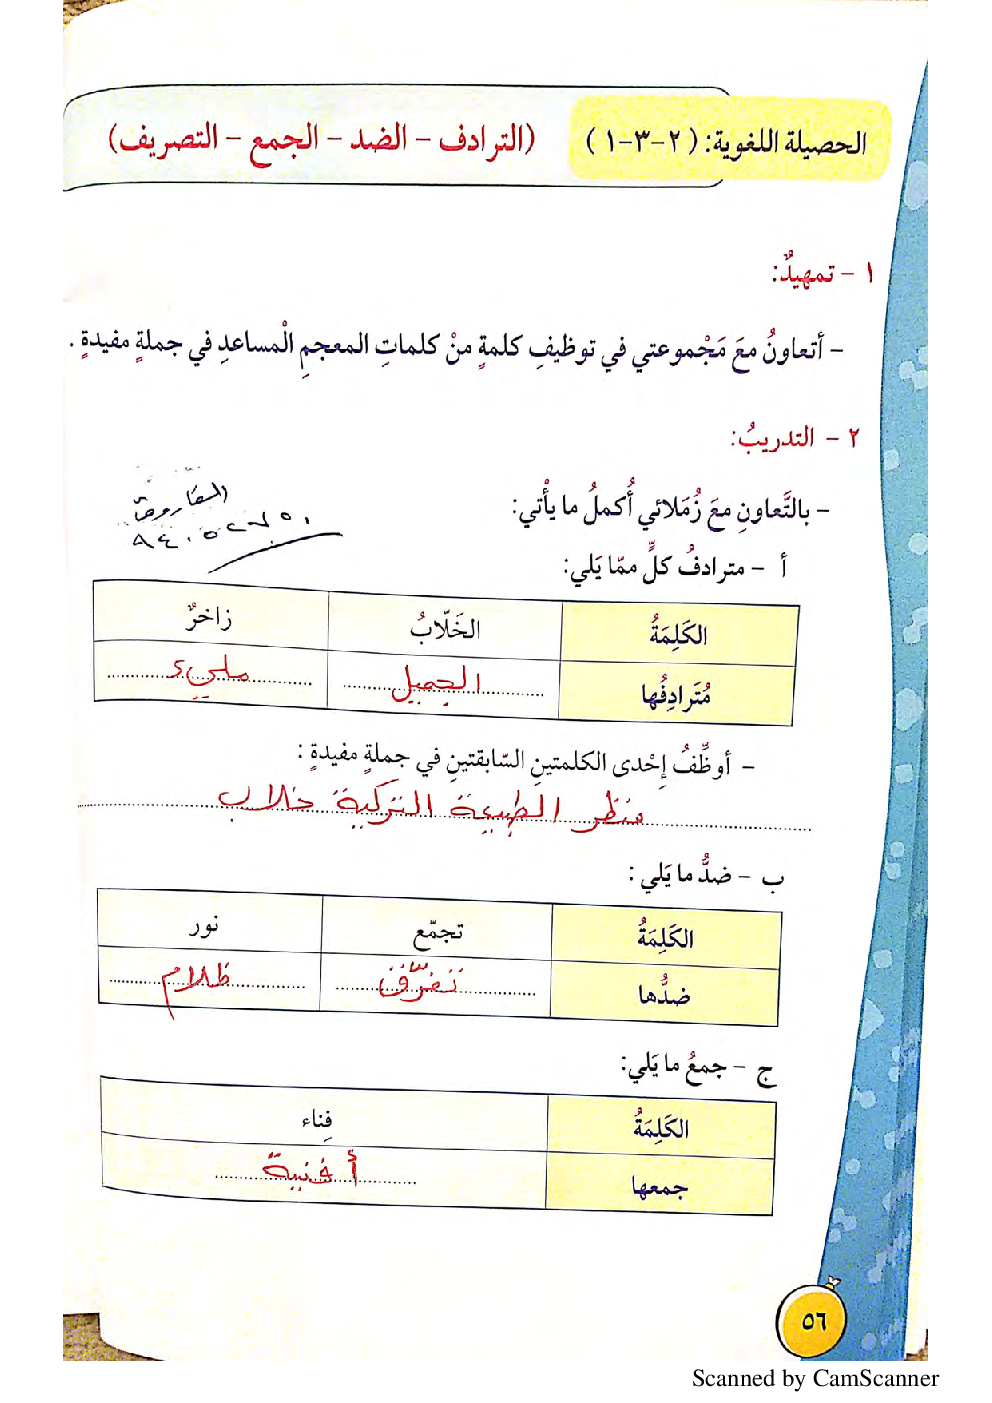 الحصيلة اللغوية: (٢-٣-١) (الترادف - الضد - الجمع - التصريف)
١ - تمهيدٌ:
- أتعاونُ معَ مَجْموعتي في توظيفِ كلمةٍ منْ كلماتِ المعجمِ الْمساعدِ في جملةٍ مفيدةٍ.
٢ - التدريبُ:
- بالتَّعاونِ معَ زُملائي أُكملُ ما يأْتي:
أ - مترادفُ كلٍّ ممّا يَلي:
الكَلِمَةُ الخَلّابُ زاخرٌ
مُتَرادِفُها الجميل مليء
- أوظِّفُ إحْدى الكلمتينِ السّابقتينِ في جملةٍ مفيدةٍ:
منظر الطبيعة التركية خلاب
ب - ضدُّ ما يَلي:
الكَلِمَةُ تجمّع نور
ضدُّها تفرّق ظلام
ج - جمعُ ما يَلي:
الكَلِمَةُ فِناء
جمعها أفنية
٥٦
Scanned by CamScanner